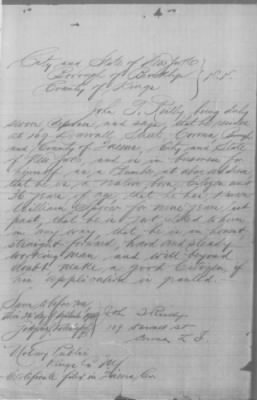 City and State of New York
Borough of Brooklyn } S.S.
County of Kings
John T. Reilly, being duly
sworn deposes and says, that he resides
at 109 Street, Corona, Boro
and County of Queens, City and State
of New York, and is in business for
himself as a Plumber at above address
that he is a native born Citizen and
36 years of age, that he has known
William for nine years last
past, that he is not related to him
in any way, that he is an honest
straight forward, hard and steady
working man, and will beyond
doubt make a good Citizen if
his application is granted.
Sworn to before me
this day of
109 St
Corona L. I.
Notary Public
Kings Co.
Certificate filed in Queens Co.